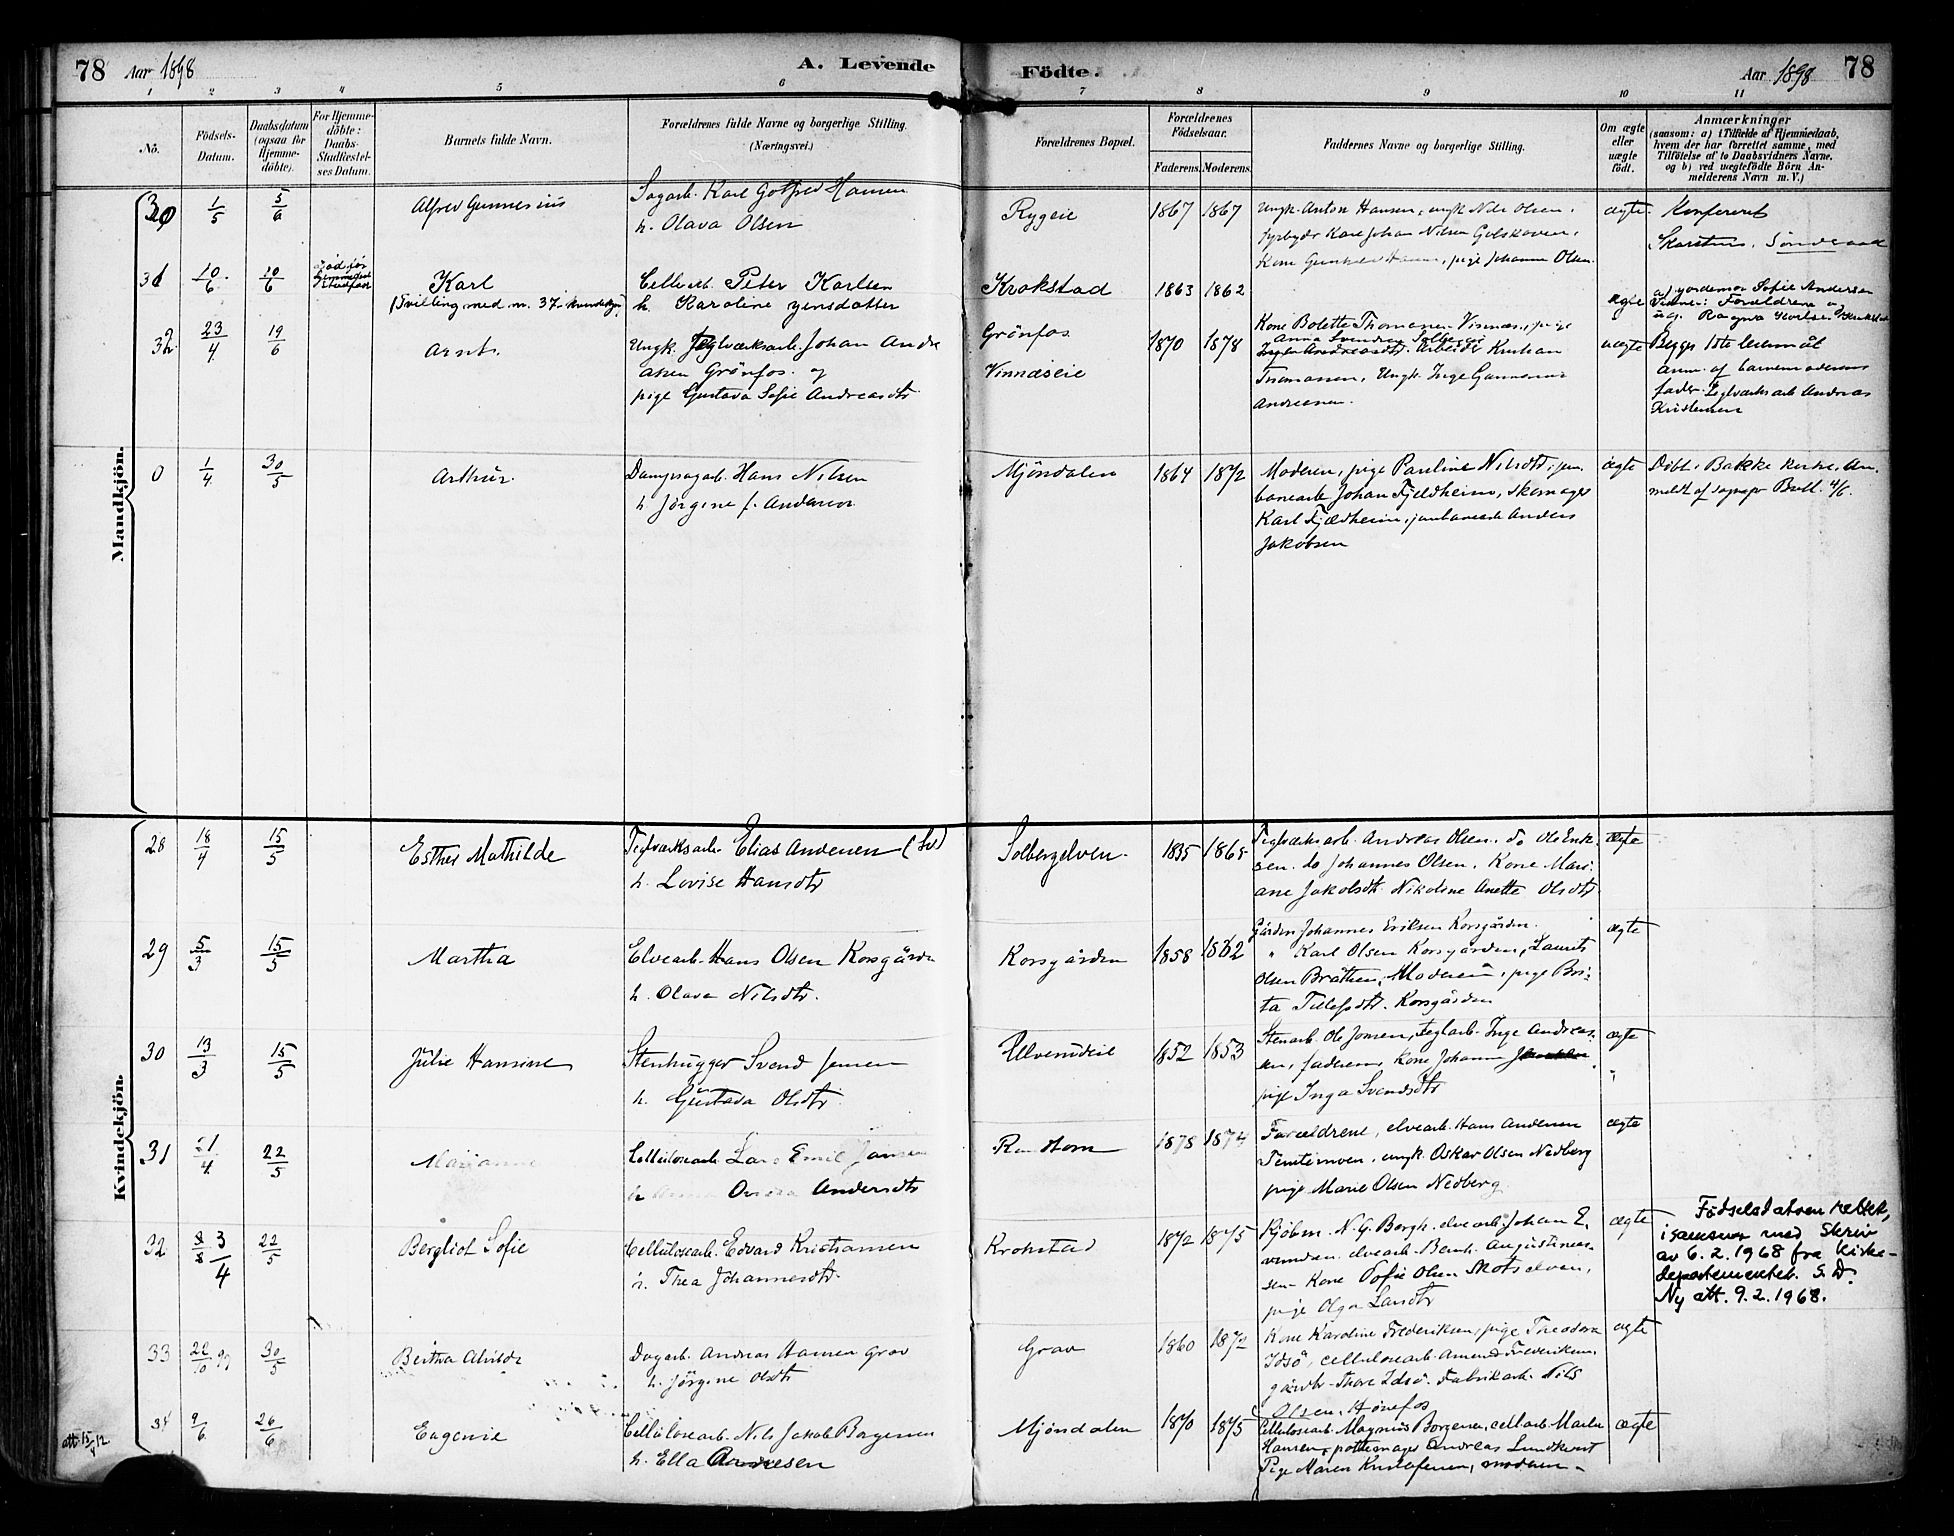 78 Aar 1898 A. Levende Födte. Aar 1898 78
1 2 3 4 5 6 7 8 9 10 11
No.
Födsels-Datum.
Daabsdatum (ogsaa for Hjemme-döbte).
For Hjemme-döbte: Daabs-Stadfæstel-ses Datum.
Barnets fulde Navn.
Forældrenes fulde Navne og borgerlige Stilling. (Næringsvei.)
Forældrenes Bopæl.
Forældrenes Födselsaar.
Faderens. Moderens.
Faddernes Navne og borgerlige Stilling.
Om ægte eller uægte födt.
Anmærkninger
(saasom: a) i Tilfælde af Hjemmedaab,
hvem der har forrettet samme, med
Tilföielse af to Daabsvidners Navne,
og b) ved uægtefödte Börn An-
melderens Navn m. V.)
Mandkjön.
30 1/5 5/6 Alfred Gunnerius
Sagarb. Karl Gotfred Hansen
h. Olava Olsen
Rygeie 1867 1867
Ungk. Anton Hansen, ungk. Nils Olsen,
Karl Johan Nilsen
Kone Hansen, pige Johanne Olsen
ægte
31 10/6 10/6 Karl
(Tvilling med nr. 37 kvindekjøn)
Cellearb. Peter Karlsen
h. Karoline Jensdatter
Krokstad 1863 1862
ægte
a) jordemor Sofie Andersen
Vidner: Forældrene og
32 23/4 19/6 Arnt.
Ungk. Teglværksarb. Johan Andre
asen Grönfos. og
pige Gustava Sofie Andreasdtr
Grönfos
Vinnæseie
1870 1878
Kone Bolette Thomasen Vinnæs, pige
Inga Andreasdtr. Arbeider Kristian
Thomassen, Ungk. Inge Gunnerius
Andreasen.
uægte
Begges 1ste leiermål
Anm. af barnemoderens
fader Teglværksarb Andreas
Kristensen
0 1/4 30/5 Arthur.
Dampsagarb. Hans Nilsen
h. Jörgine f. Andersen
Mjöndalen 1864 1872
Moderen, pige Pauline Nilsdtr, jern
banearb Johan Fjeldheim, skomager
Karl Fjeldheim, jernbanearb Anders
Jakobsen
ægte
Döbt i Bakke kirke. An-
meldt af sognepr Bull. 4/6.
Kvindekjön.
28 18/4 15/5 Esther Mathilde
Teglværksarb. Elias Andersen (Sv)
h. Lovise Hansdtr
Solbergelven. 1835 1865
Teglværksarb. Andreas Olsen. do Ole Erik-
sen. do Johannes Olsen. Kone Mari-
ane Jakobsdtr. Nikoline Anette Olsdtr
ægte
29 5/3 15/5 Martha
Elvearb. Hans Olsen Korsgården
h. Olava Nilsdtr.
Korsgården 1858 1862
Gårdm Johannes Eriksen Korsgården.
" Karl Olsen Korsgården, Laurits
Olsen Bråthen, Moderen, pige Bor-
ta Tollefsdtr. Korsgården
ægte
30 13/3 15/5 Julie Hansine
Stenhugger Svend Jensen
h. Gustava Olsdtr
1852 1853
Stenarb. Ole Jonsen, Teglarb. Inge Andreas-
sen, faderen, Kone Johanne
pige Inga Svendsdtr
ægte
"
31 21/4 22/5 Marianne
Cellulosearb. Lars Emil Jansen
h. Andersdtr
1878 1874
Forældrene, elvearb. Hans Andersen
ungk. Oskar Olsen Nedberg
pige Marie Olsen Nedberg
ægte
32 3/4 22/5 Bergliot Sofie
Cellulosearb. Edvard Kristiansen
h. Thea Johannesdtr.
Krokstad 1872 1875
Kjöbm. N. G. Borgh. elvearb. Johan E.
elvearb. Bernh. Augustinus-
sen Kone Sofie Olsen Skotselven,
pige Olga Larsdtr
ægte
Födselsdatoen rettet,
i samsvar med Skriv
av 6.2.1968 fra Kirke-
departementet. S.D.
Ny att. 9.2.1968.
33 22/10 97 30/5 Bertha Alvilde
Dagarb. Andreas Hansen Grav
h. Jörgine Olsdtr
Grav 1860 1872
Kone Karoline Frederiksen, pige Theodora
Idsö, cellulosearb. Frederiksen,
Thore Idsö. Fabrikarb. Nils
Olsen, Hönefos
ægte
34 9/6 26/6 Eugenie
att. 15/V 12
Cellulosearb. Nils Jakob Borgersen
h. Ella Andresen
Mjöndalen 1870 1875
Cellulosearb. Magnus Borgersen, cellarb. Martin
Hansen, pottemager Andreas Lundkvist
Pige Maren Kristofersen, moderen.
ægte